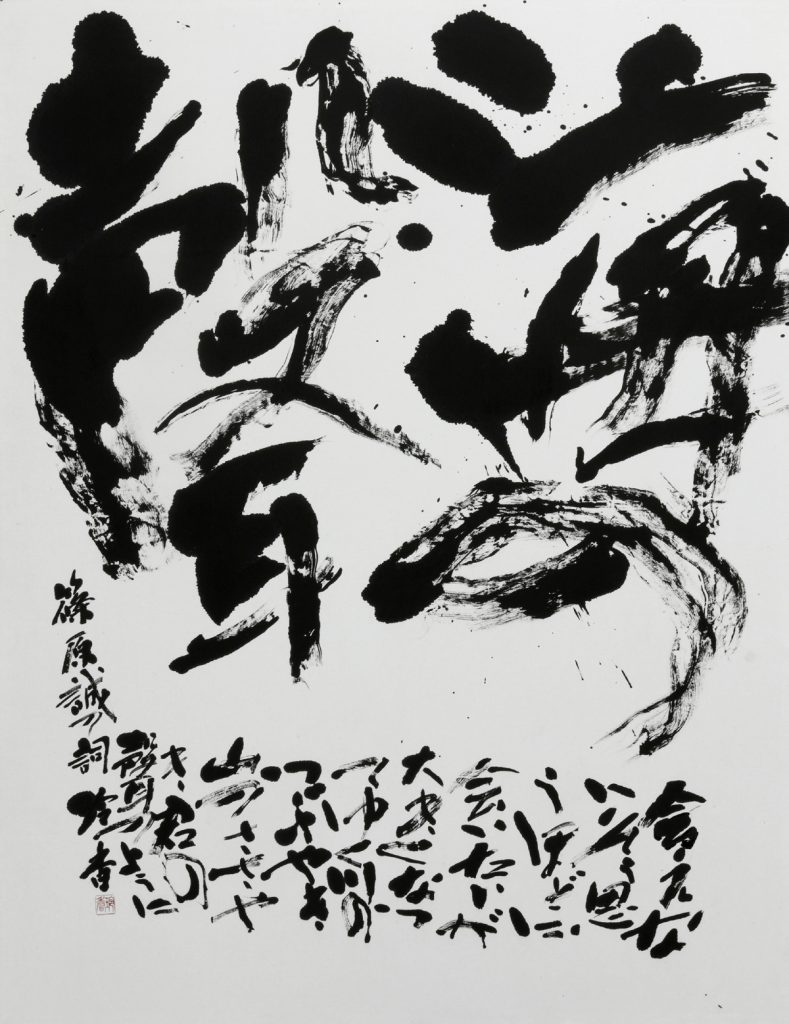 海の聲
會えな
いそう思
うほどに
会いたいが
大きくなっ
てゆく川の
つぶやき
山のささや
き君の
聲のように
篠原誠の詞